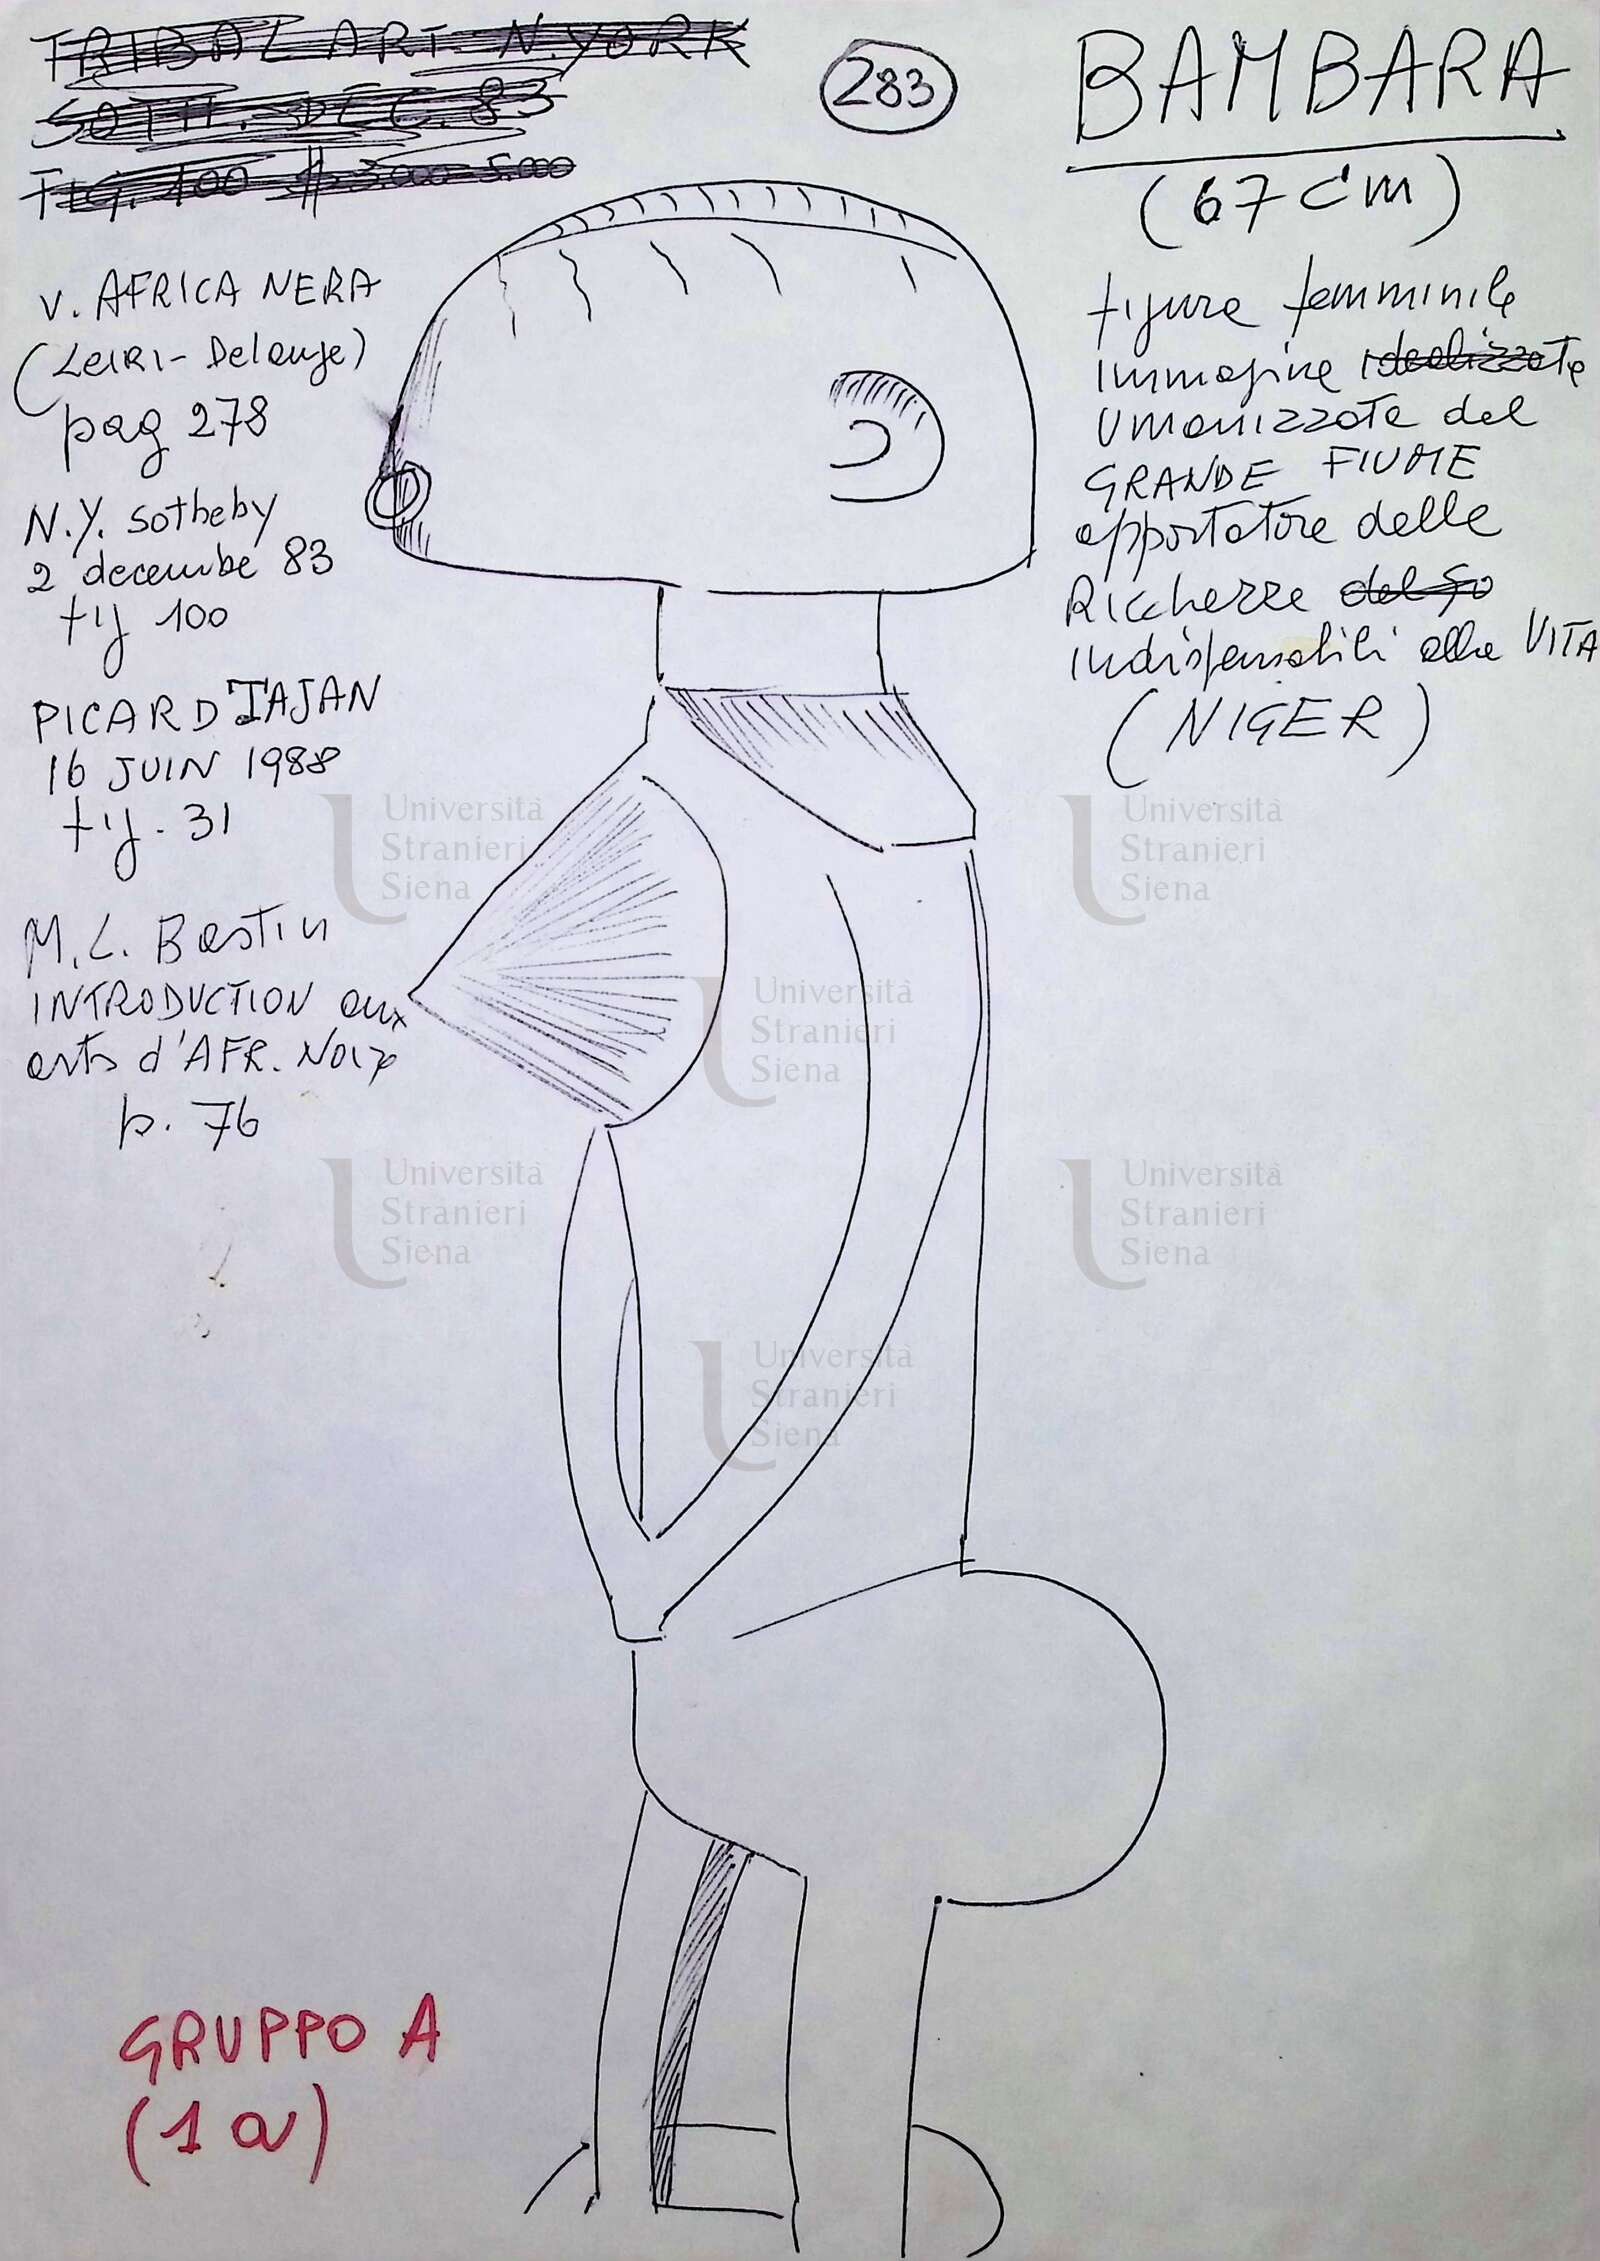 TRIBAL ART. N.YORK
SOTH. DEC. 83
FIG. 100 $ 3.000-5.000
283
BAMBARA
(67 cm)
v. AFRICA NERA
(LEIRI-Delange)
pag 278
N.Y. sotheby
2 decembe 83
fig 100
PICARD TAJAN
16 JUIN 1988
fig. 31
M.L. Bastin
INTRODUCTION aux
arts d'AFR. Noire
p. 76
figura femminile
immagine idealizzata
umanizzata del
GRANDE FIUME
apportatore delle
Ricchezze
indispensabili alla VITA
(NIGER)
GRUPPO A
(1a)
Università
Stranieri
Siena
Università
Stranieri
Siena
Università
Stranieri
Siena
Università
Stranieri
Siena
Università
Stranieri
Siena
Università
Stranieri
Siena